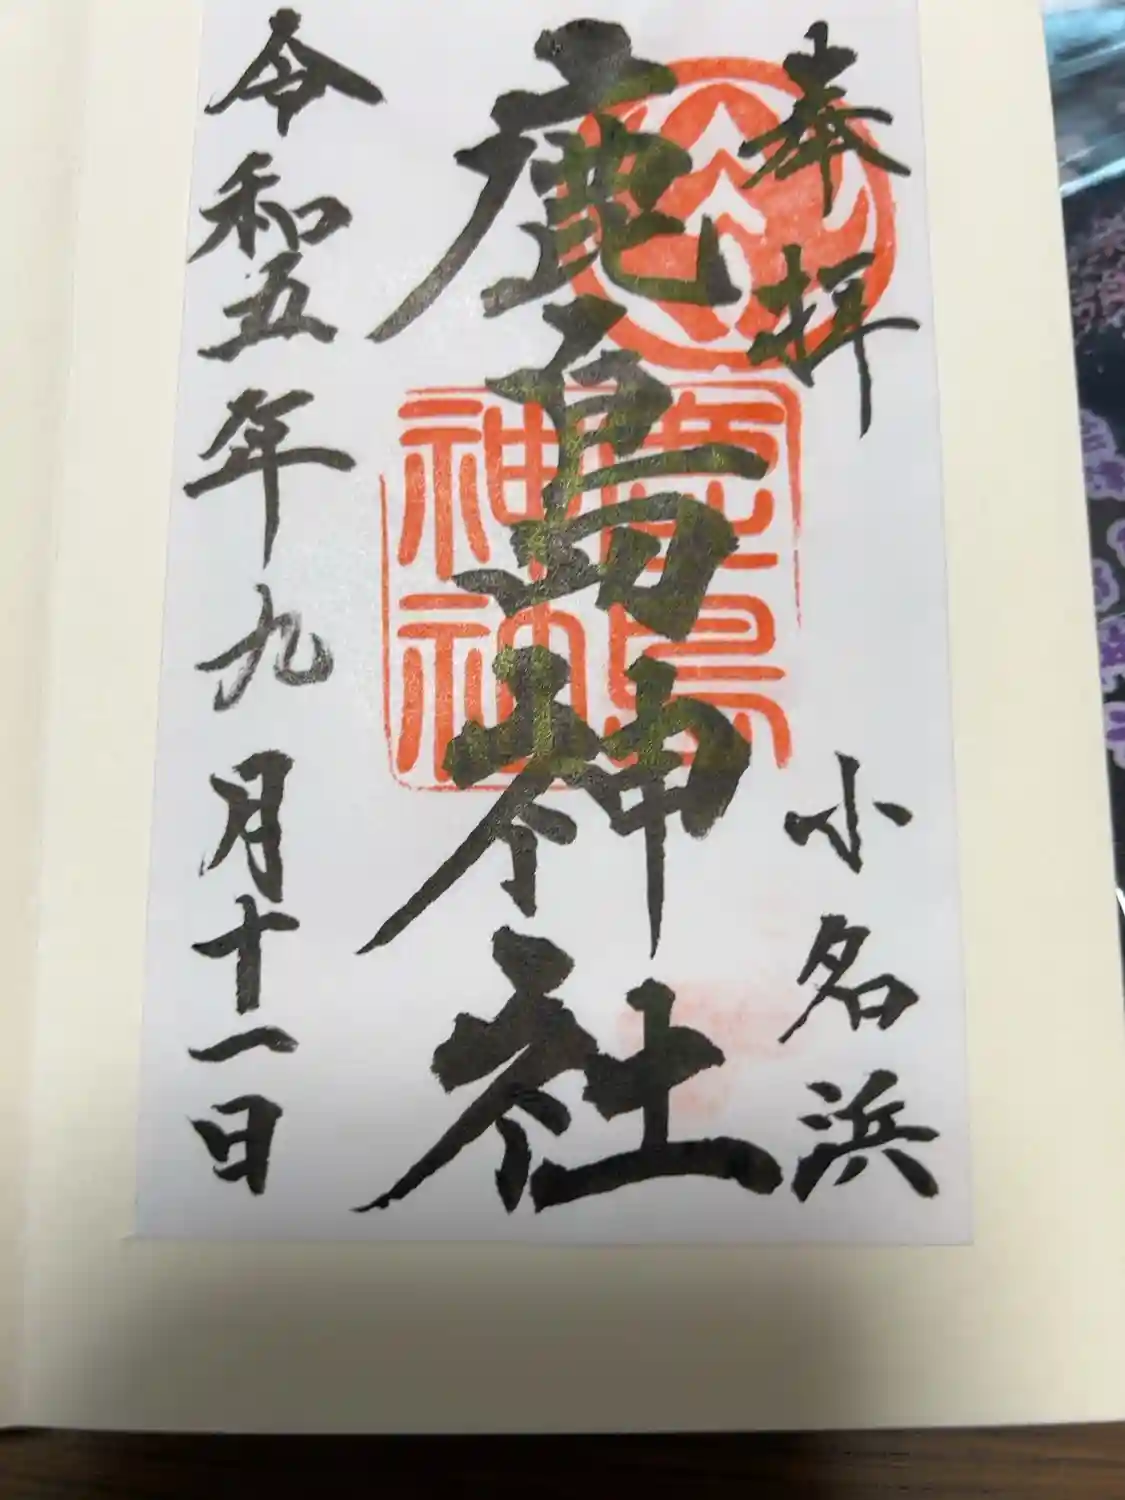 奉拝
小名浜
鹿島神社
鹿島神社
令和五年九月十一日